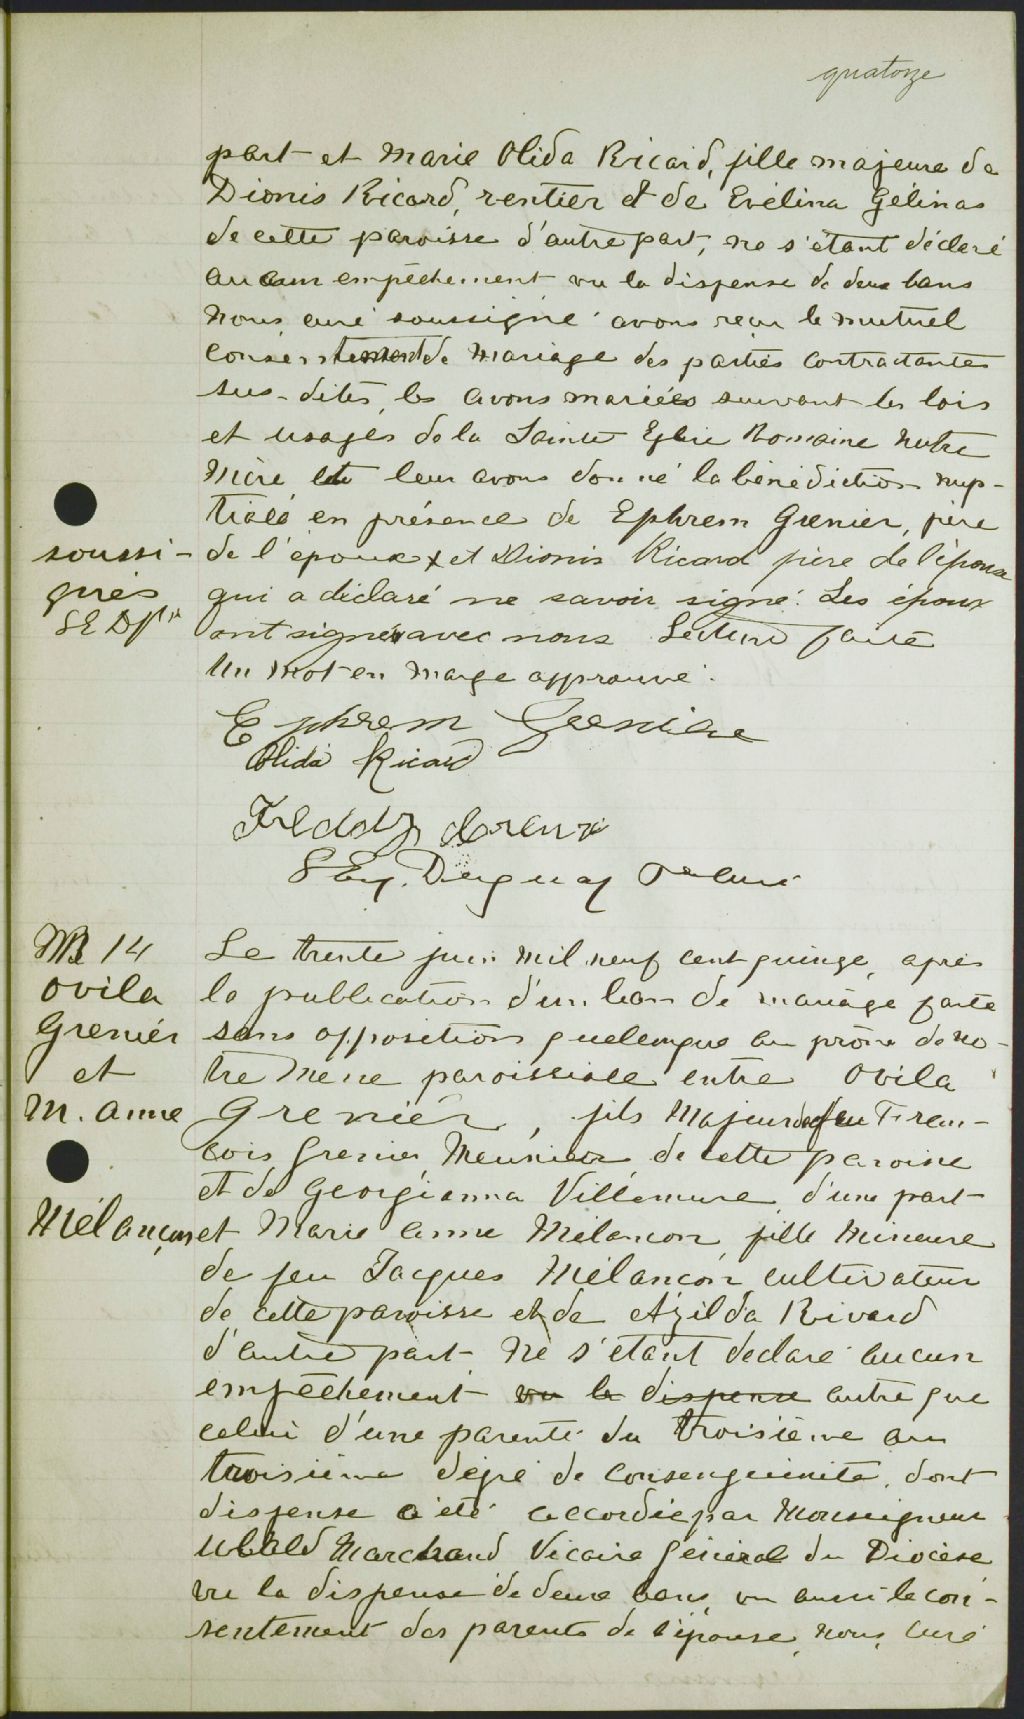 quatorze
part et Marie Olida Ricard, fille majeure de
Dionis Ricard, rentier et de Evélina Gélinas
de cette paroisse d'autre part, ne s'étant décleré
aucun empêchement vu la dispense de deux bans
Nous, curé soussigné avons reçu le mutuel
consentement de mariage des parties contractantes
sus-dites, les avons mariées suivant les lois
et usages de la Sainte Eglise Romaine notre
Mère et leur avons donné la bénédiction nup-
tiale en présence de Ephrem Grenier, père
soussi- de l'époux x et Dionis Ricard père de l'épouse
gnés qui a déclaré ne savoir signé. Les époux
S E D Ptre ont signé avec nous Lecture faite
Un mot en marge approuvé.
Ephrem Grenier
Olida Ricard
Freddy
S Eug. Duguay Ptre curé
M 14 Le trente juin mil neuf cent quinze, après
Ovila la publication d'un ban de mariage faite
Grenier sans opposition quelconque au prône de no-
et tre messe paroissiale entre Ovila
M. Anne Grenier, fils Majeur de feu Fran-
cois Grenier, Meunier de cette paroisse
et de Georgianna Villemure d'une part
Mélançon et Marie Anne Mélancon, fille Mineure
de feu Jacques Mélançon cultivateur
de cette paroisse et de Azilda Rivard
d'autre part ne s'étant declaré aucun
empêchement vu la dispense autre que
celui d'une parenté du troisième au
troisième degré de consenguinité, dont
dispense a été accordée par Monseigneur
Ubald Marchand Vicaire Général du Diocèse
vu la dispense de deux bans, vu aussi le con-
sentement des parents de l'épouse, nous, curé